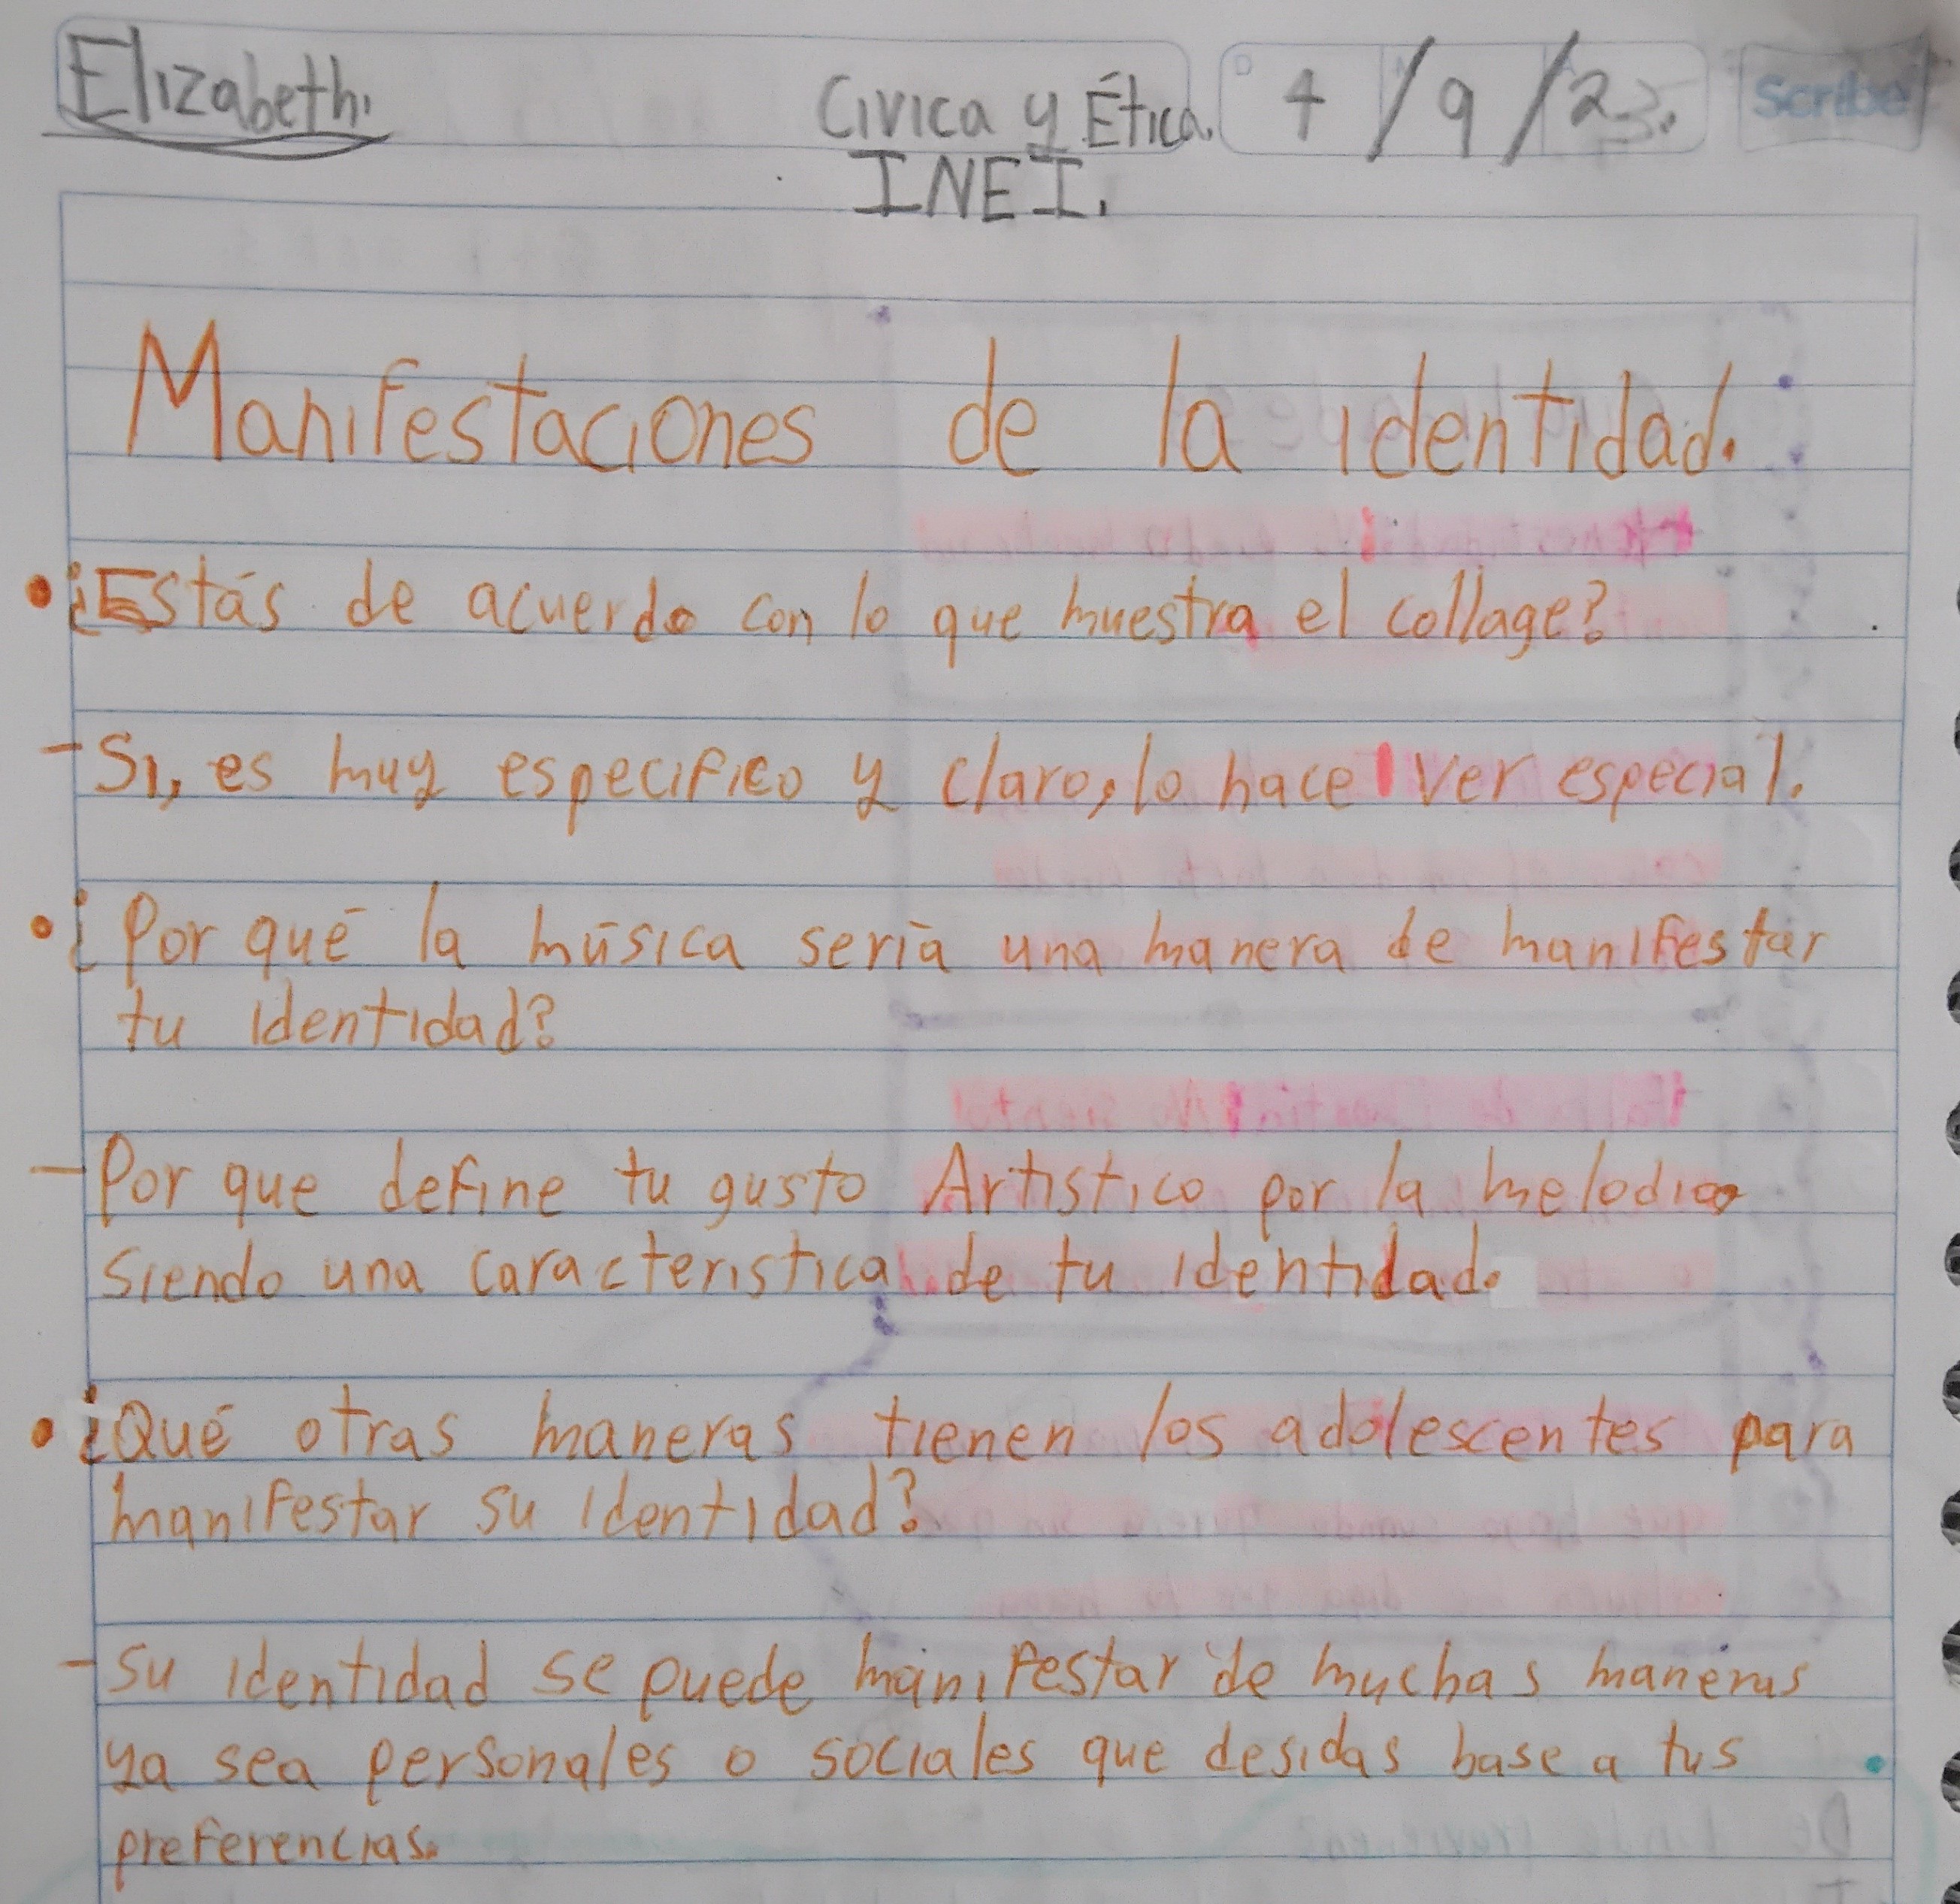 Elizabeth.
Civica y Ética. 4/9/23. Scribe
INEI.
Manifestaciones de la identidad.
• ¿Estás de acuerdo con lo que muestra el collage?
- Si, es muy especifico y claro, lo hace ver especial.
• ¿Por qué la música sería una manera de manifestar
tu identidad?
- Por que define tu gusto Artistico por la melodia
siendo una caracteristica de tu identidad.
• ¿Qué otras maneras tienen los adolescentes para
manifestar su identidad?
- Su identidad se puede manifestar de muchas maneras
ya sea personales o sociales que desidas base a tus
preferencias.